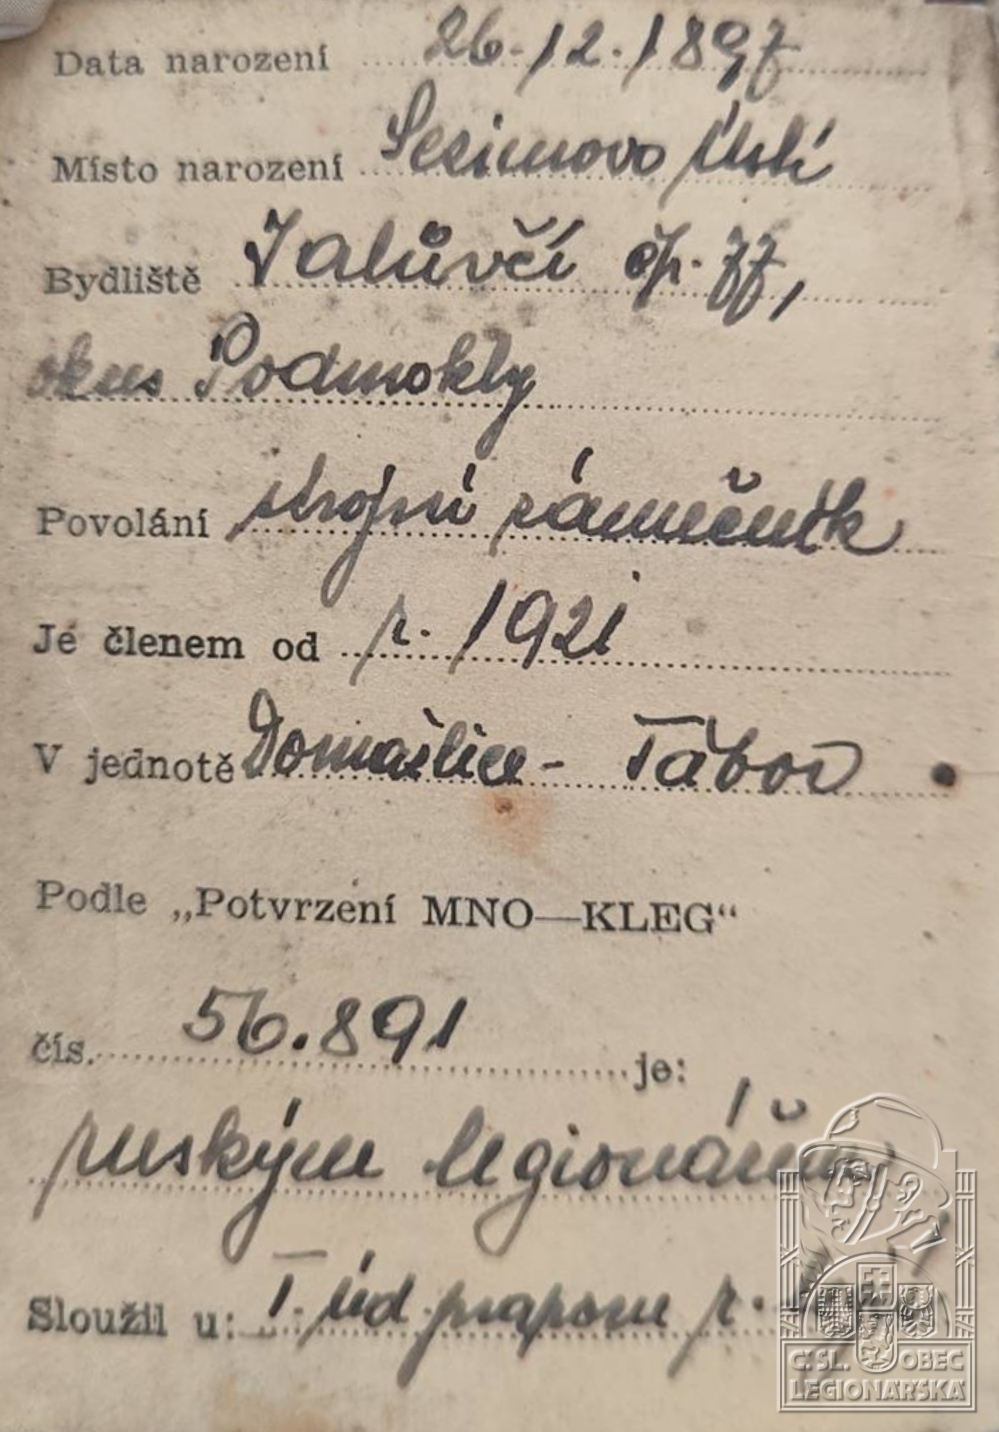 Data narození 26.12.1897
Místo narození Sezimovo Ústí
Bydliště Jalůvčí čp. 77,
okres Podmokly
Povolání strojní zámečník
Je členem od r. 1921
V jednotě Domažlice - Tábor
Podle „Potvrzení MNO—KLEG“
čís. 56.891 je:
ruským legionářem
Sloužil u: I. úd. prapom r.
Č. SL. OBEC
LEGIONÁŘSKÁ